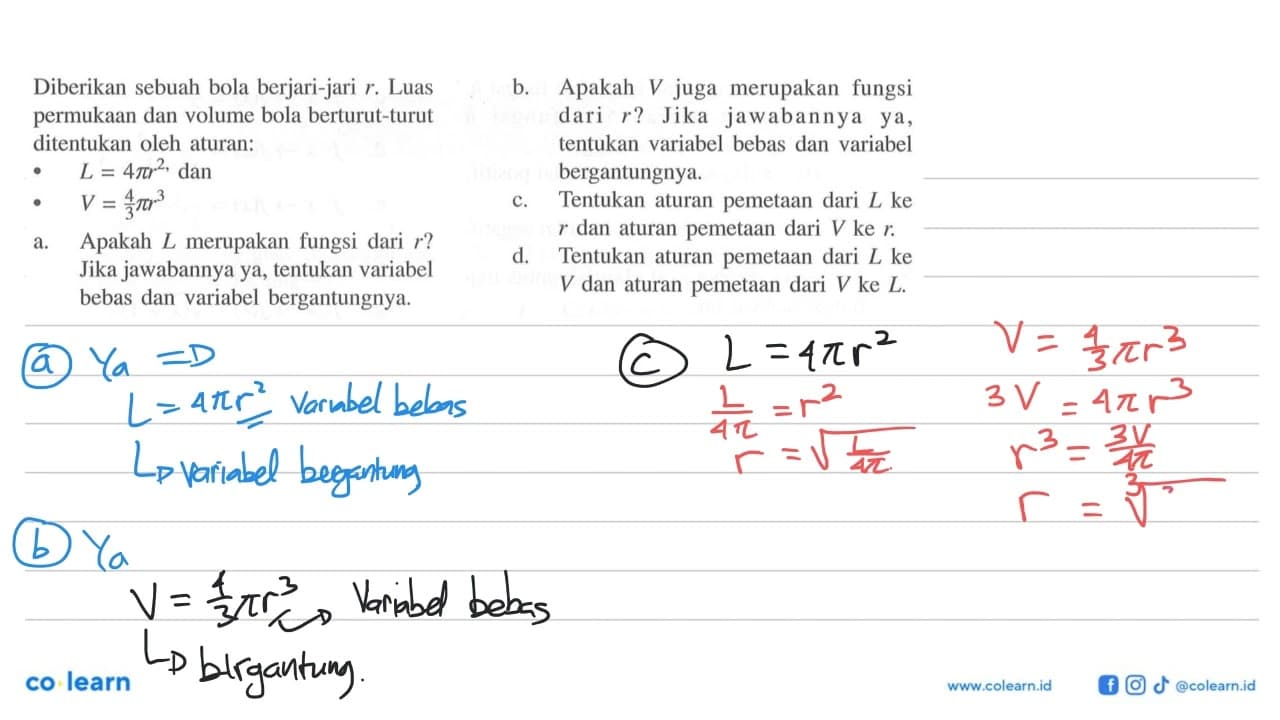 Diberikan sebuah bola berjari-jari r. Luas
permukaan dan volume bola berturut-turut
ditentukan oleh aturan:
• L = 4πr², dan
• V = 4/3 πr³
a. Apakah L merupakan fungsi dari r?
Jika jawabannya ya, tentukan variabel
bebas dan variabel bergantungnya.
b. Apakah V juga merupakan fungsi
dari r? Jika jawabannya ya,
tentukan variabel bebas dan variabel
bergantungnya.
c. Tentukan aturan pemetaan dari L ke
r dan aturan pemetaan dari V ke r.
d. Tentukan aturan pemetaan dari L ke
V dan aturan pemetaan dari V ke L.
a Ya ⇒
L = 4πr² Variabel bebas
↳ Variabel begantung
b Ya
V = 4/3 πr³ → Variabel bebas
↳ bergantung.
c L = 4πr²
L/4π = r²
r = √L/4π
V = 4/3 πr³
3V = 4πr³
r³ = 3V/4π
r = ∛
co learn
www.colearn.id
@colearn.id